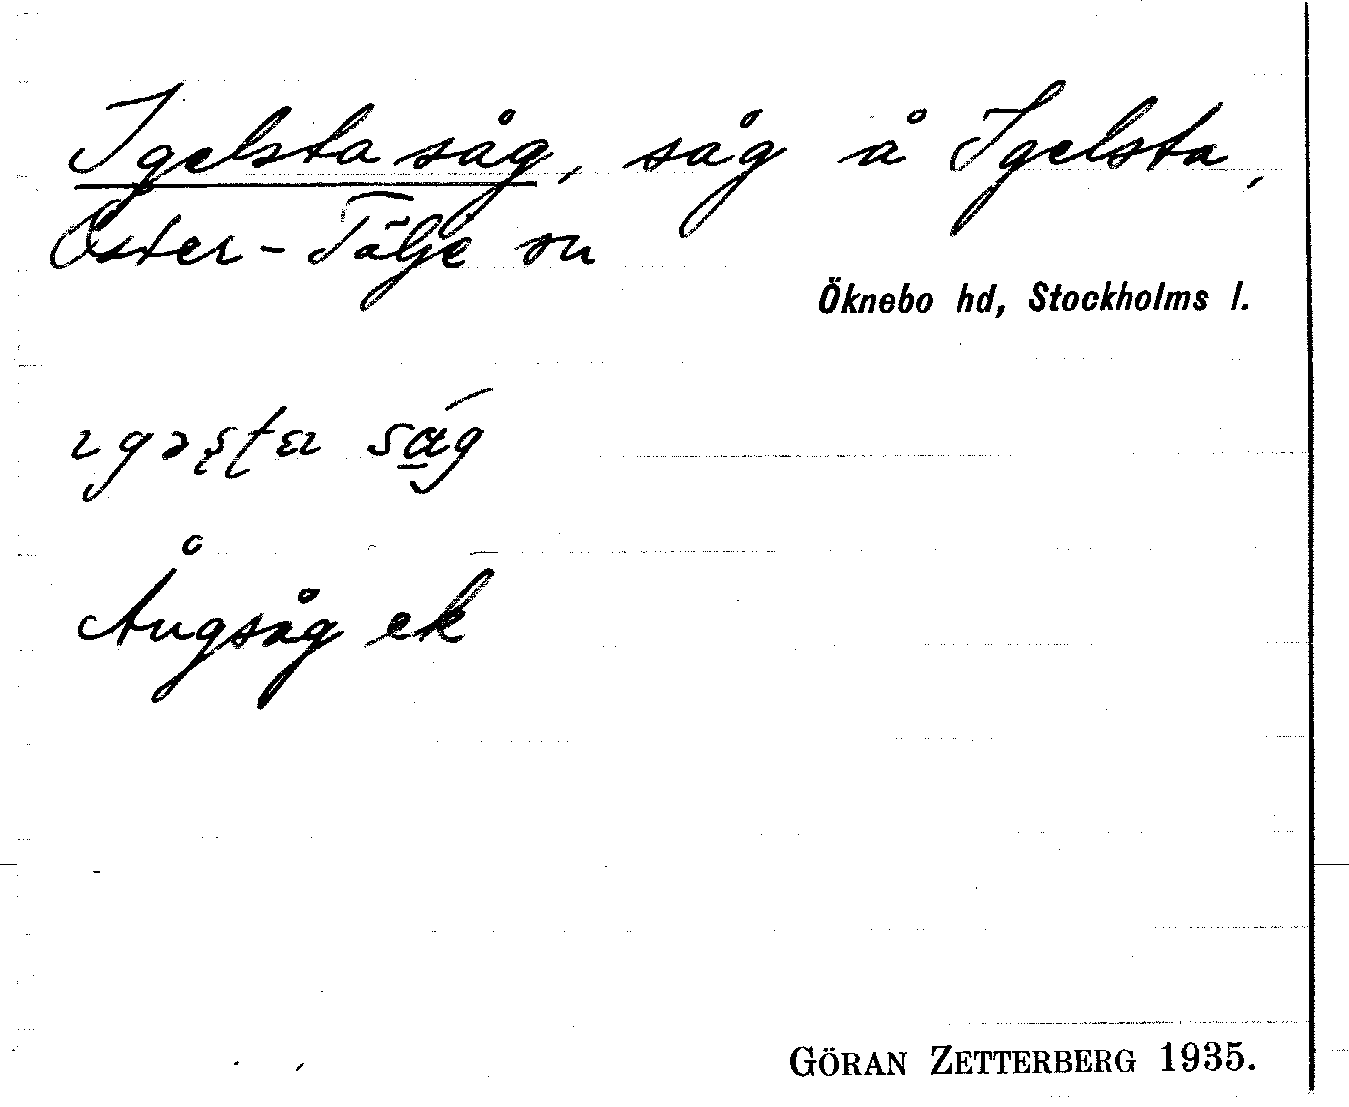 Igelsta såg, såg å Igelsta,
Öster-Tälje sn
Öknebo hd, Stockholms l.
ıgəʂʈa såg
Ångsåg ek
GÖRAN ZETTERBERG 1935.